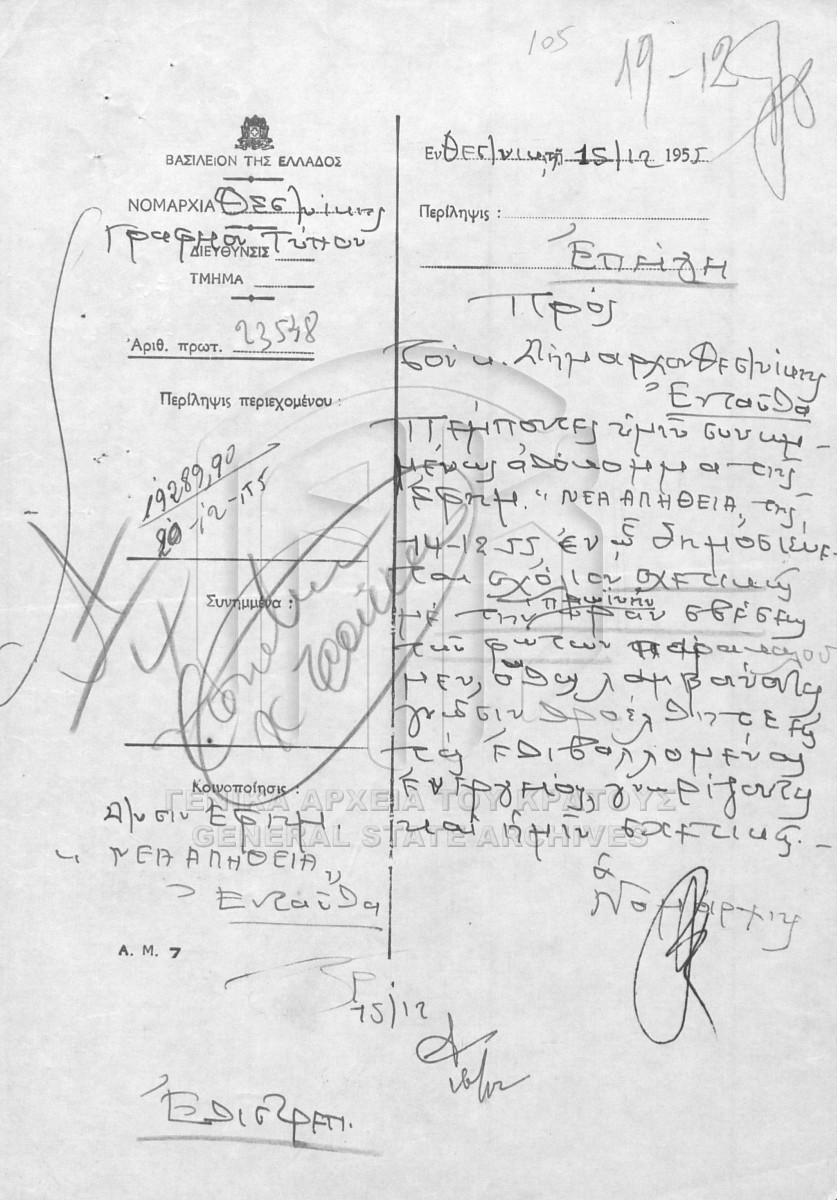 105
19-12
ΒΑΣΙΛΕΙΟΝ ΤΗΣ ΕΛΛΑΔΟΣ
ΝΟΜΑΡΧΙΑ Θεσ/νίκης
Γραφεῖον Τύπου
ΔΙΕΥΘΥΝΣΙΣ
ΤΜΗΜΑ
Ἀριθ. πρωτ. 23548
Περίληψις περιεχομένου :
19289,90
20-12-55
Συνημμένα :
Κοινοποίησις :
Δ/νσιν Ἐφημ.
" ΝΕΑ ΑΛΗΘΕΙΑ "
Ἐνταῦθα
Α. Μ. 7
Ἐν Θεσ/νίκῃ τῇ 15/12 1955
Περίληψις :
Ἐπείγη
Πρός
Τον κ. Δήμαρχον Θεσ/νίκης
Ἐνταῦθα
Πέμποντες ὑμῖν συνημ-
μένως ἀπόκομμα τῆς
Ἐφημ. " ΝΕΑ ΑΛΗΘΕΙΑ " τῆς
14-12-55, ἐν ᾧ δημοσιεύε-
ται σχόλιον σχετικῶς
μέ την πρωϊνήν ὥραν σβέσεως
τῶν φώτων παρακαλοῦ
μεν, ὅπως λαμβάνοντες
γνῶσιν προέλθητε εἰς
τάς ἐπιβαλλομένας
ἐνεργείας, γνωρίζοντες
καί ἡμῖν σχετικῶς.-
ὁ
Νομάρχης
15/12
Ἐπιστρεπ.
ΓΕΝΙΚΑ ΑΡΧΕΙΑ ΤΟΥ ΚΡΑΤΟΥΣ
GENERAL STATE ARCHIVES